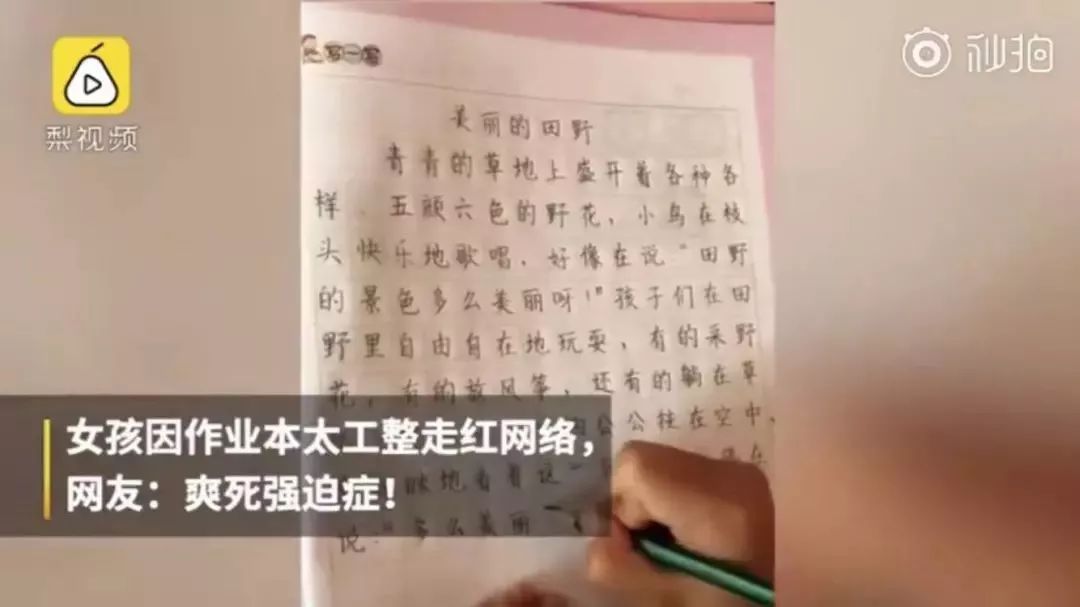 梨视频
秒拍
写一写
美丽的田野
青青的草地上盛开着各种各
样、五颜六色的野花,小鸟在枝
头快乐地歌唱,好像在说“田野
的景色多么美丽呀!”孩子们在田
野里自由自在地玩耍,有的采野
花,有的放风筝,还有的躺在草
公公挂在空中,
地看着这
说:“多么美丽
女孩因作业本太工整走红网络,
网友:爽死强迫症!